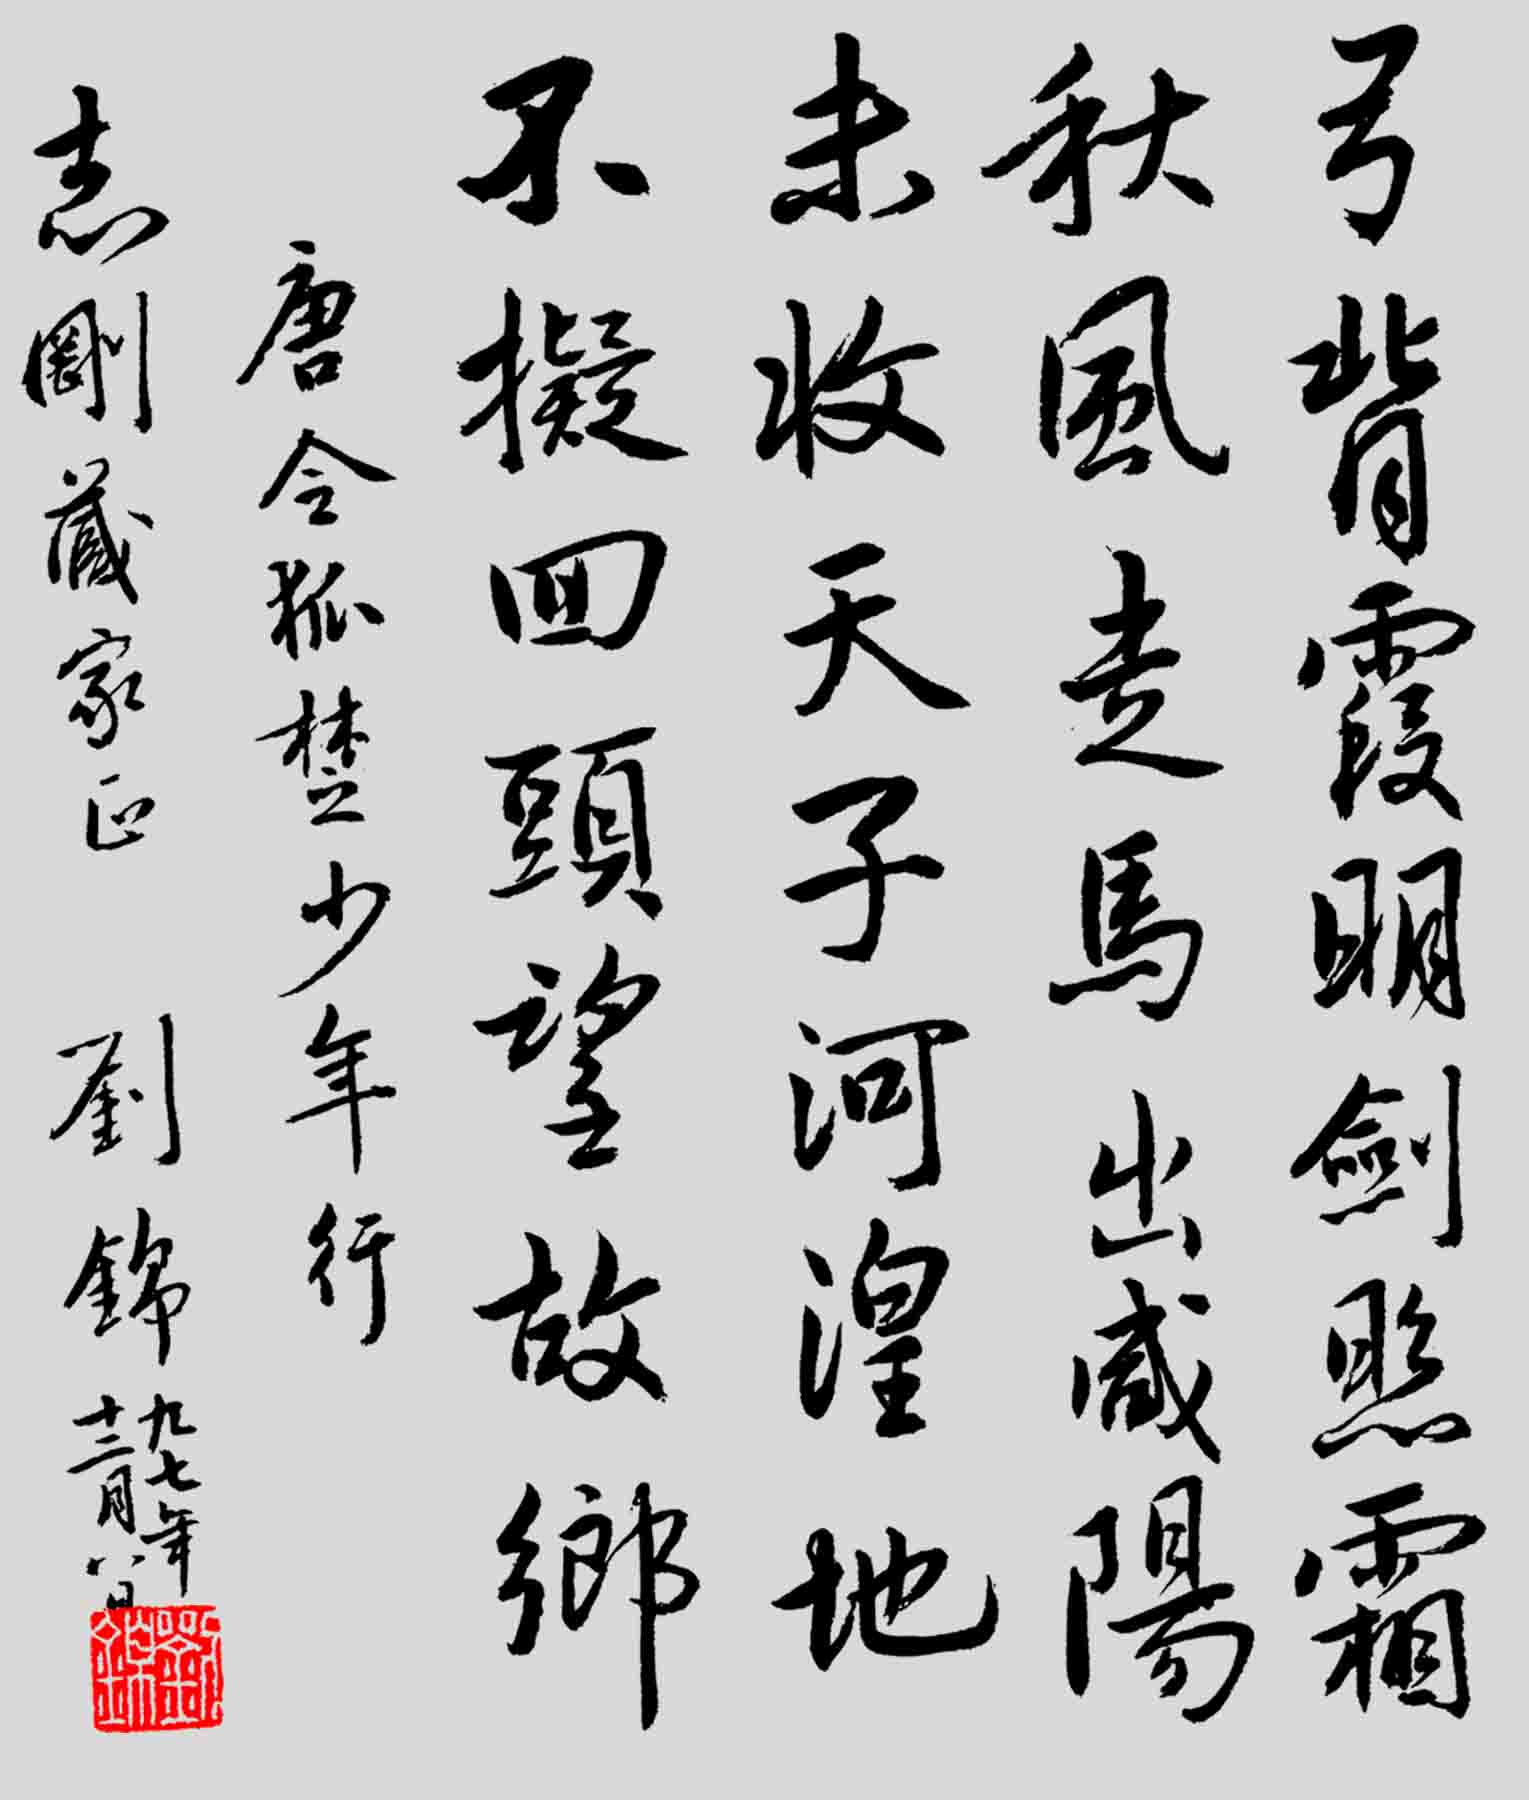 弓背霞明劍照霜
秋風走馬出咸陽
未收天子河湟地
不擬回頭望故鄉
唐令狐楚少年行
志剛藏家正 劉錦
九七年
十二月八日
劉錦